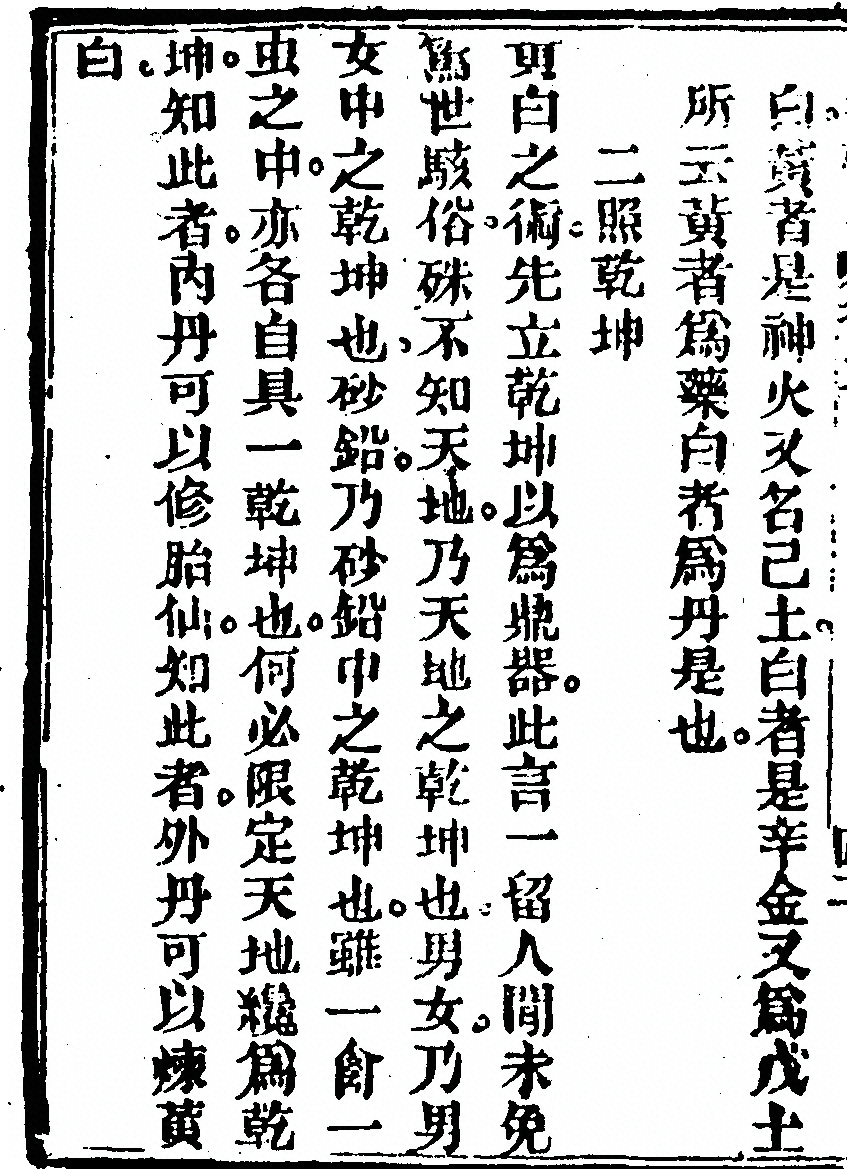 白黄者是神火又名己土。白者是辛金又爲戊土
所云黄者爲藥白者爲丹是也。
二照乾坤
白之術。先立乾坤以爲鼎器。此言一留人間未免
驚世駭俗。硃不知天地。乃天地之乾坤也。男女。乃男
女中之乾坤也。砂鉛。乃砂鉛中之乾坤也。雖一禽一
虫之中。亦各自具一乾坤也。何必限定天地纔爲乾
坤。知此者。內丹可以修胎仙。知此者。外丹可以煉黄
白。